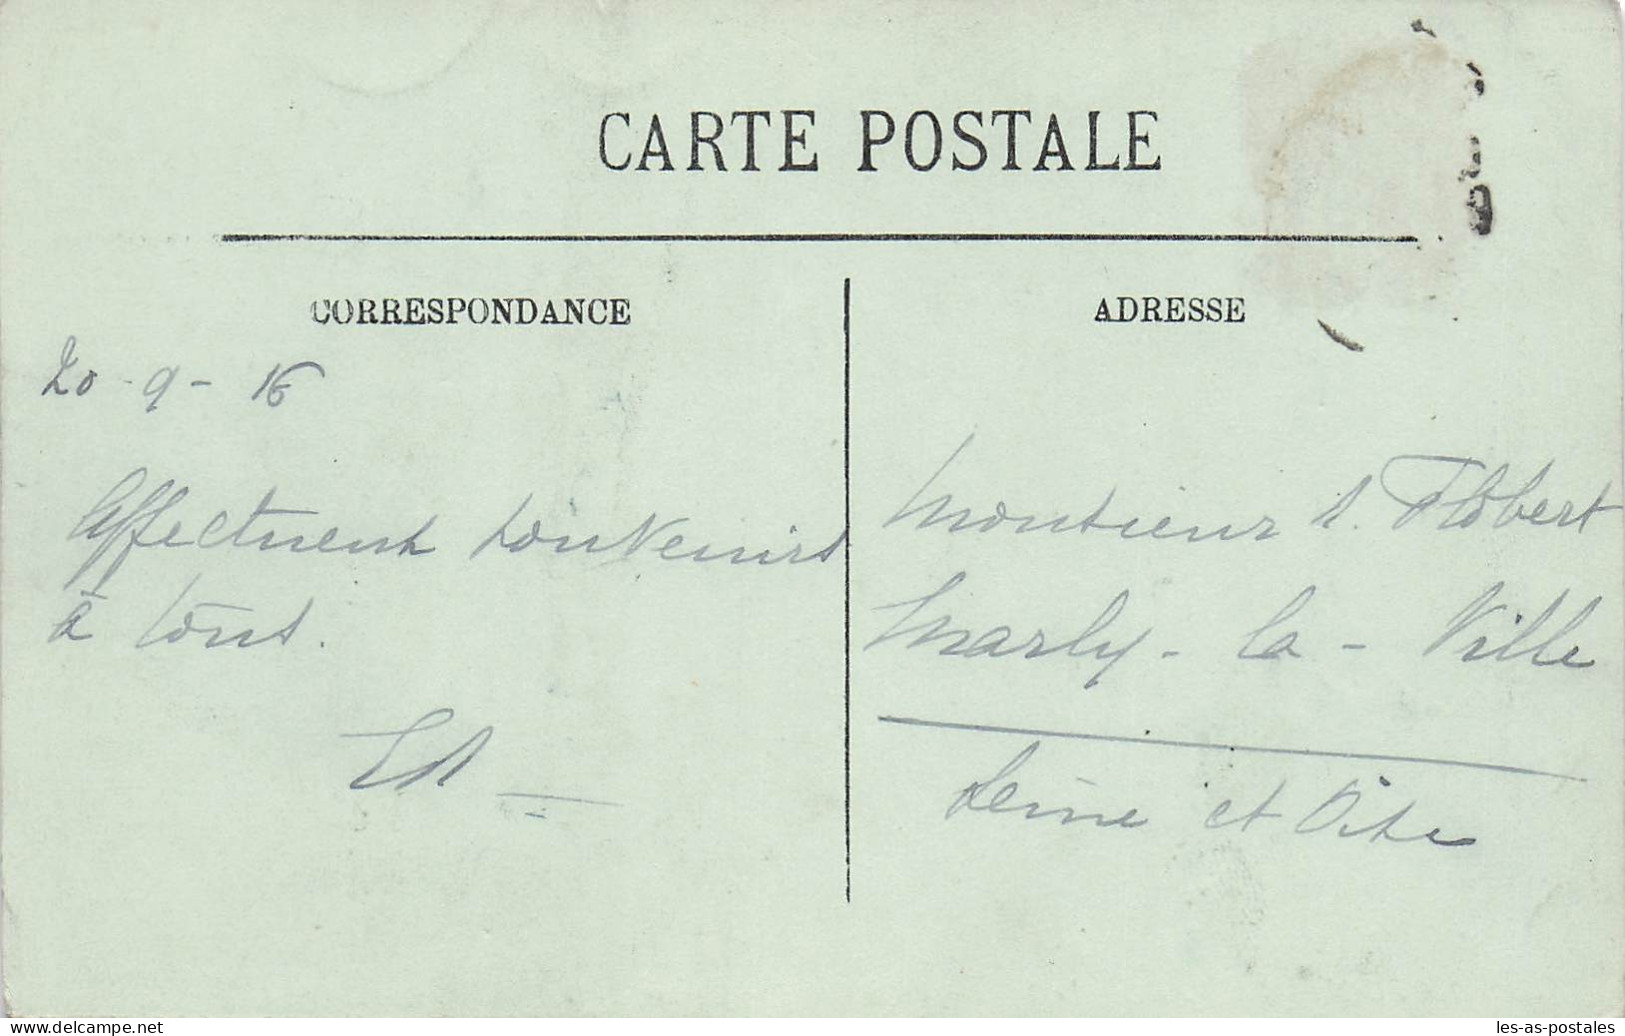 CARTE POSTALE
CORRESPONDANCE
ADRESSE
20 - 9 - 16
Affectueux souvenirs
à tous.
Monsieur S. Flobert
Marly - la - Ville
Seine et Oise
www.delcampe.net
les-as-postales